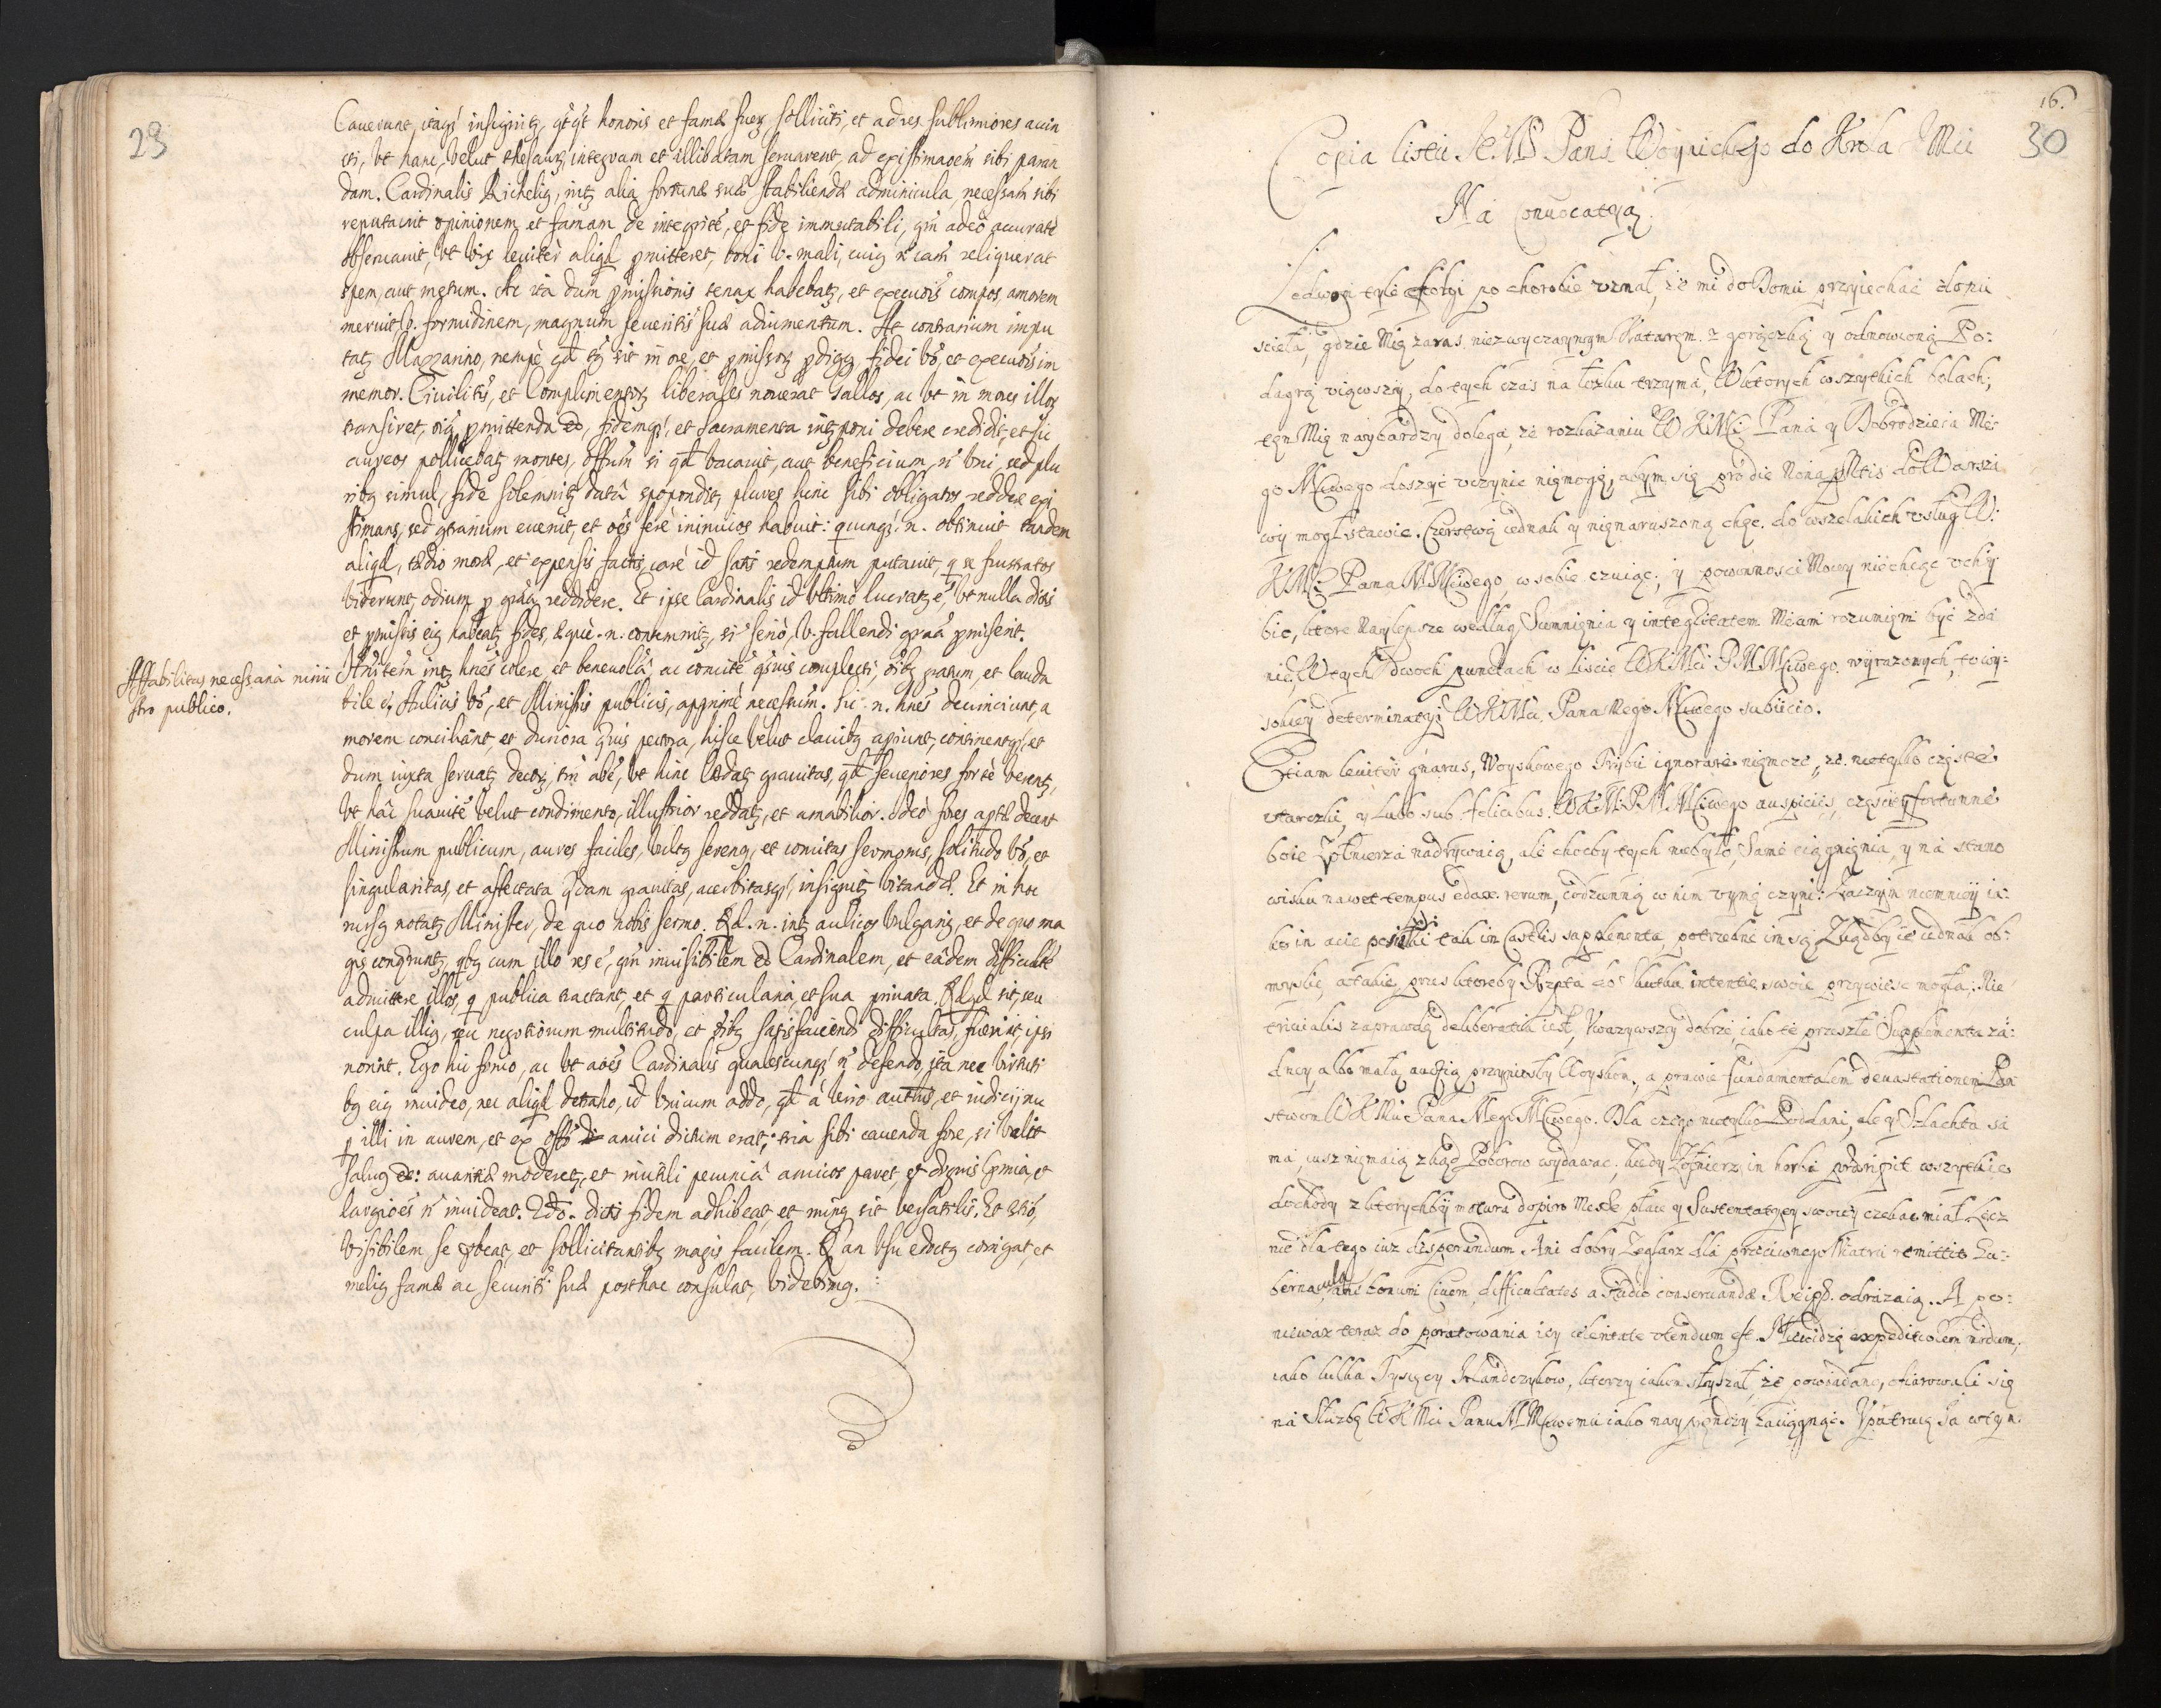 29
Cauerunt, itaq' insignitz, honoris et famæ suæ, solliciti, et ad res sublimiores accin
cti, vt hanc, velut thesaurz integram et illibatam seruarent, ad existimaoem sibi paran
dam. Cardinalis Richelig, intz alia fortunæ suæ stabiliendæ adminicula, necessam sibi
reputauit opinionem et famam de integrite, et fide immutabili, qm adeo accurate
obseruauit, vt vix leuiter aliqd pmitteret, boni v. mali, cuig reliquerat
spem, aut metum. Ac ita dum pmissionis tenax habebatz, et execuois compos, amorem
meruit, v. formidinem, magnum seueritis suæ adiumentum. At contrarium impu
tatz Mazzarino, nempe qd sit in ore, et pmissorz pdigg, fidei vo, et execuois im
memor. Ciuilitis, et Complimentorz liberales nouerat Gallos, ac vt in mores illorz
transiret, oia pmittenda eo, fidemq', et sacramenta intzponi debere credidit, et sic
aureos pollicebatz montes, offum si qd vacauit, aut beneficium, n vni, sed plu
ribg simul, fide solemnitz datâ spopondit, plures hinc sibi obligatos reddere exi
stimans, sed contrarium euenit, et oes fere inimicos habuit: quicunq' n. obtinuit tandem
aliqd, tædio moræ, et expensis factis, care id satis redemptum putauit, q se frustratos
viderunt, odium p graa reddidere. Et ipse Cardinalis id vltimo lucratz e, vt nulla dictis
et pmissis eig habeatz fides, æque n. contemnitz, si serio, v. fallendi graa pmiserit.
Affabilitas necessaria mini
stro publico.
intz hnes colere, et beneuola, ac comite quiuis complecti, oibg gratum, et lauda
bile e, Aulicis vo, et Ministris publicis, apprime necessum. Sic n. hnes deuinciunt, a
morem conciliant, et duriora quius pectora, hisce velut clauibg apiunt, continentq', et
dum iuxta seruatz decorz, tm abe, vt hinc lædatz grauitas, qd seueriores forte verentz,
vt hac suauite velut condimento, illustrior reddatz, et amabilior. Adeo fores aptæ decent
Ministrum publicum, aures faciles, vultg sereng, et comitas sermonis, solitudo vo, et
singularitas, et affectata qdam grauitas, acerbitasq', insignitz vitandæ. Et in hoc
rursg notatz Minister, de quo nobis sermo. Qd. n. intz aulicos vulgarig, et de quo ma
gis conqruntz, qbg cum illo res e, qm inuisibilem eo Cardinalem, et eâdem difficulte
admittere illos, q publica tractant, et q particularia, et sua priuata. Qdqd sit, seu
culpa illig, seu negotiorum multitudo, et oibg satisfaciendi difficultas, fuerint, ipsi
norint. Ego hic finio, ac vt aoes Cardinalis qualescunq' n defendo, ita nec virtuti
bg eig inuideo, nec aliqd detraho, id vnicum addo, qd à viro authis, et iudicij nu
p illi in aurem, et ex offo amici dictum erat; tria sibi cauenda fore, si velit
salug ee: auaritiæ moderetz, et inutili pecuniâ amicos paret, et dignis pmia, et
largioes n inuideat. 2do. dictis fidem adhibeat, et ming sit versatilis. Et 3tio,
Visibilem se pbeat, et sollicitantibg magis facilem. Q an vsu edoctg corrigat, et
melig famæ ac securiti suæ posthac consulat, videbimg.
16.
30
Copia listu JE. W Pana Woynickiego do Krola J Mci
Na Conuocatyą.
Ledwom tyle folgi po chorobie vznał, że mi do Domu przyiechać dopu
sciła, gdzie Mię zaras niezwyczaynym Katarem z gorączką y odnowioną Po:
dagrą viąwszy, do tych czas na łożku trzyma, W ktorych wszytkich bolach,
ten Mię naybardzy dolega, że rozkazaniu W K M Ci Pana y Dobrodzieia Me
go Mciwego doszyć vczynic niemogę, abym się pro die Nona Aprilis do Warsza
wy mogł stawic. Czerstwą iednak y nienaruszoną chęc do wszelakich vsług W:
K M C Pana M Mciwego, w sobie czuiąc, y powinnosci Mowey niechcąc vchy
bic, ktore Naylepsze według Sumnienia y integritatem Meam rozumiem być zda
nie, W tych dwoch punctach w liscie W K M ci P M Mciwego wyrazonych, to wy:
sokiey determinatyi W K M ci, Pana Mego Mciwego subiicio.
Etiam leuiter gnarus, Woyskowego Trybu ignorare niemoże, że nietylko częste
vtarczki, y lubo sub felicibus W K M P M Mciwego auspicijs, częsciey fortunne
boie Żołnierza nadrywaią, ale chocby tych niebyło, Same ciągnienia, y na stano
wisku nawet tempus edax rerum, codzienną w nim vymę czyni: Zaczym niemniey ia:
ko in acie posiłki tak im Castris supplementa, potrzebne im są Zkądby ie iednak ob:
myslic, a takie, przez ktoreby Rzpta do skutku intentie swoie przywiesc mogła: Nie
triuialis zaprawdę deliberatia iest, Vwazywszy dobrze, iako te przeszłe Supplementa ża:
dney, albo małą auctią przyniosły Woysku, a prawie fundamentalem deuastationem Pań
stwom W K M ci Pana Mego Mciwego. Dla czego nietylko Poddani, ale y Szlachta sa
ma, iusz niemaią zkąd Poborow wydawac, kiedy Żołnierz in herba præripit wszytkie
dochody z ktorychby matura dopiro Messe płace y Sustentatyey swoiey czekac miał Lecz
nie dla tego iuz desperandum Ani dobry Zeglarz dla przeciwnego Wiatru remittit Gu:
bernacula, ani bonum Ciuem, difficultates a studio conseruandæ Reipb. odrazaią. A po:
niewaz teraz do poratowania iey celeritate vtendum est. Niewidzę expeditiorem modum,
iako kilka Tysięcy Irlandczykow, ktorzy iakom słyszał, że powiadano, ofiarowali się
na Służbę W K M ci Panu M Mciwemu iako nayprędzy zaciągnąć. Vpatruię Ja w tym